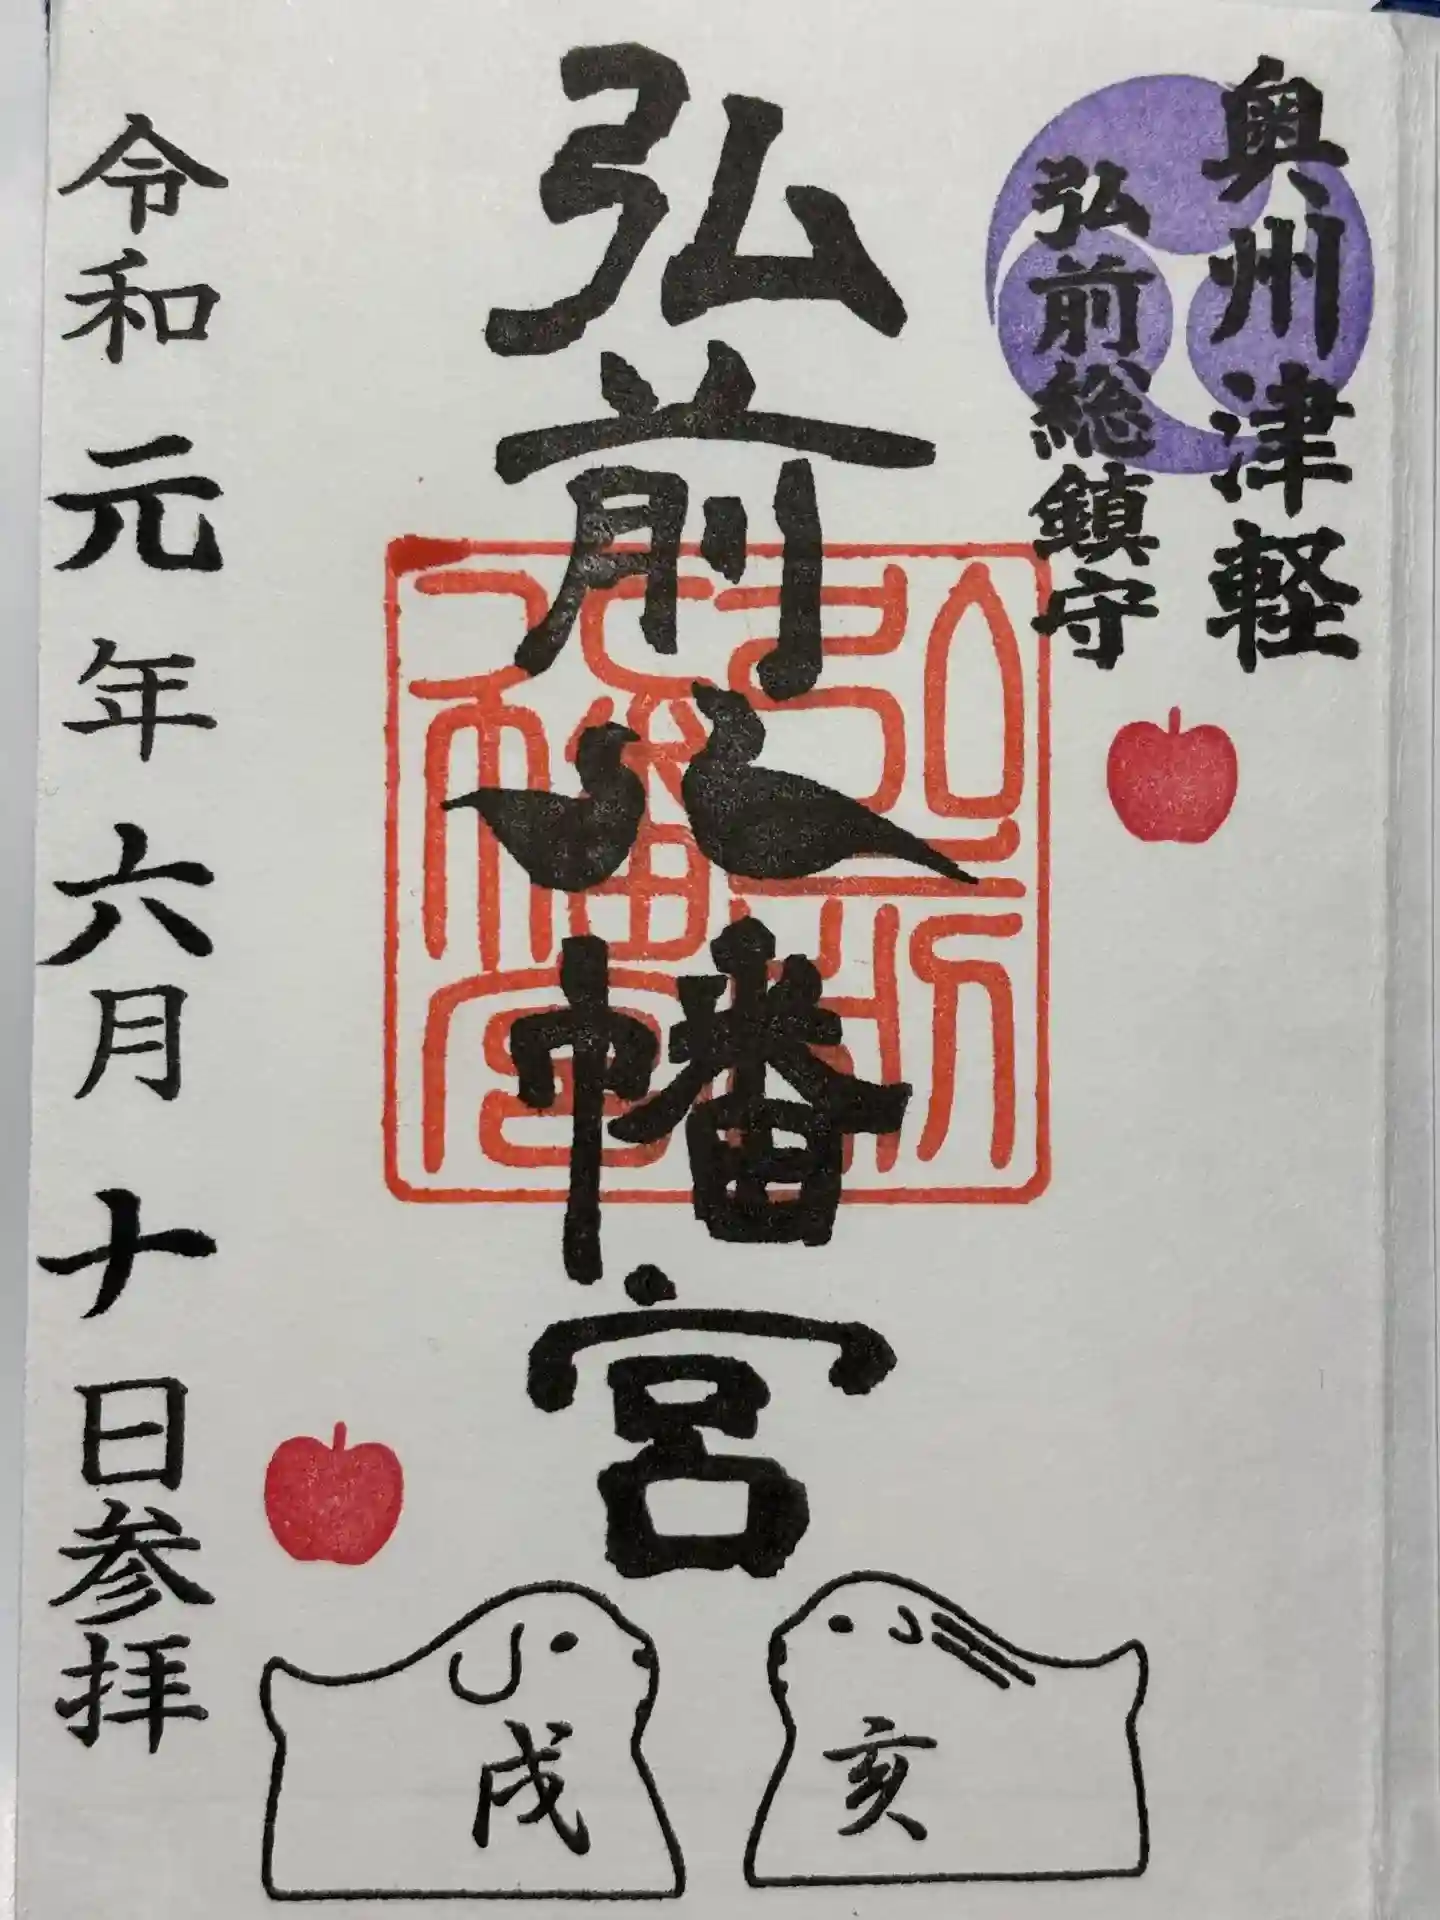 奥州津軽
弘前総鎮守
弘前八幡宮
弘前八幡宮
令和元年六月十日参拝
亥
戌